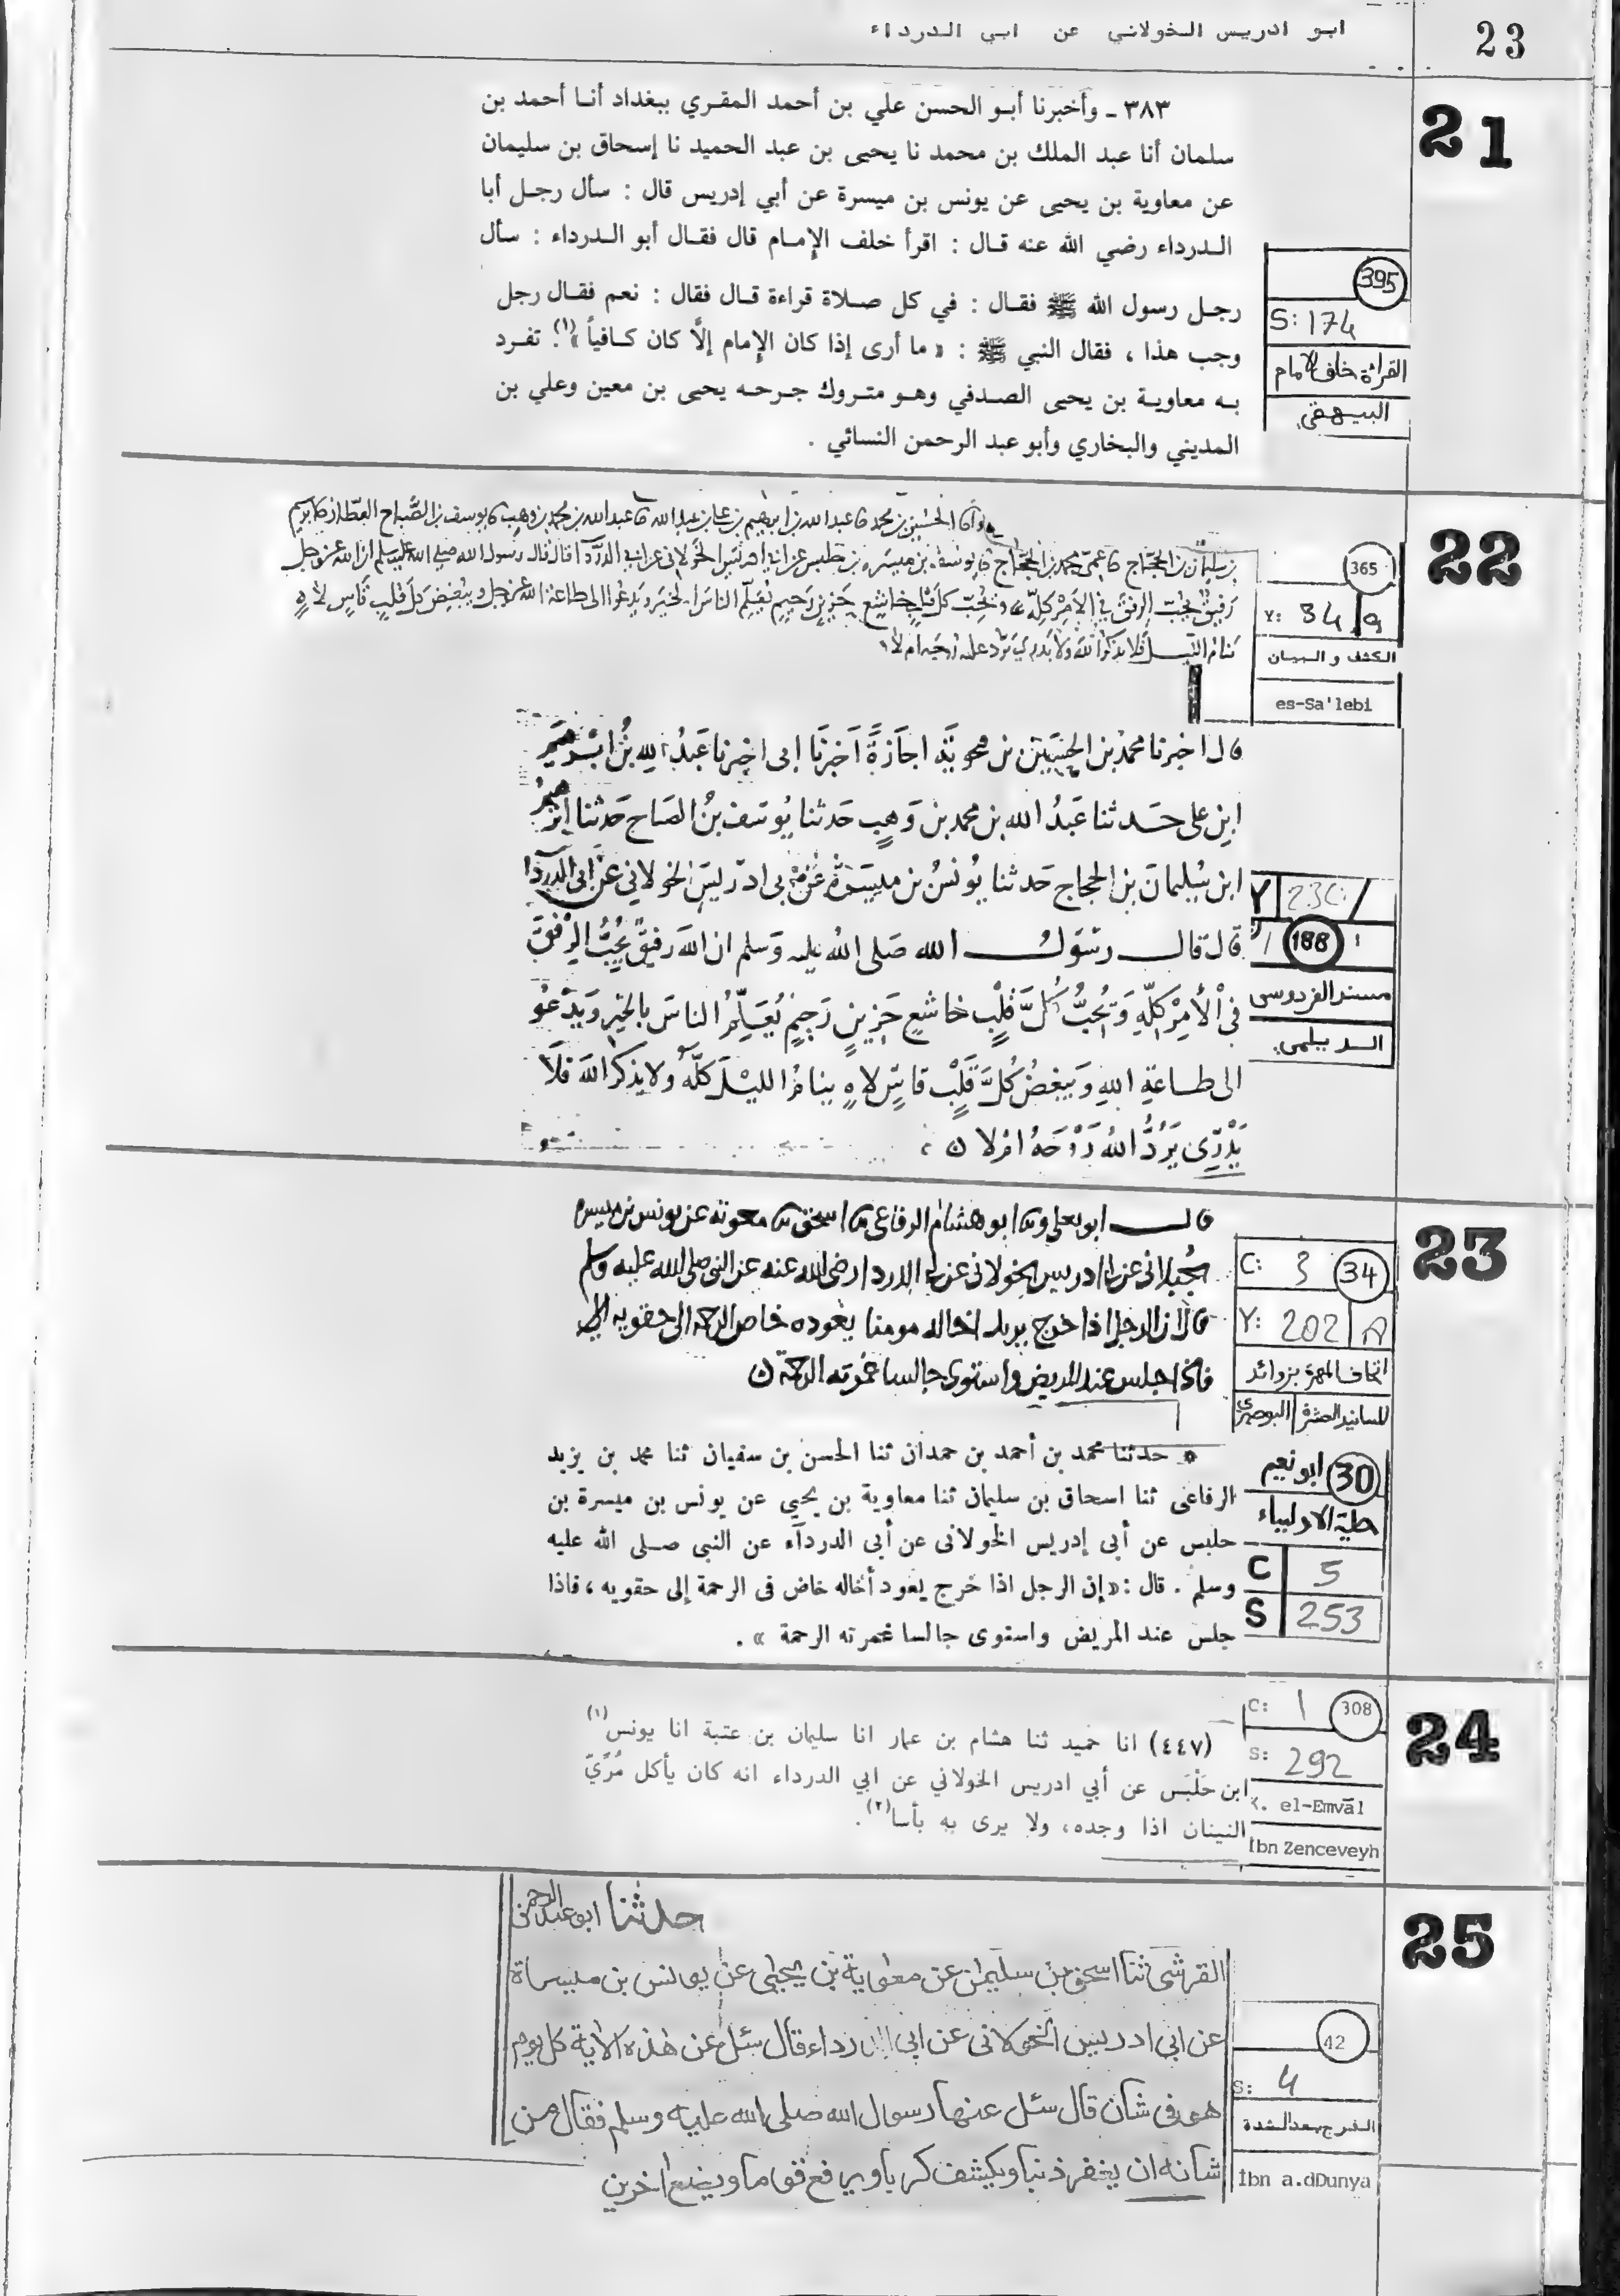 ابو ادريس الخولاني عن ابي الدرداء
23
21
٣٨٣ ـ وأخبرنا أبو الحسن علي بن أحمد المقري ببغداد أنا أحمد بن
سلمان أنا عبد الملك بن محمد نا يحيى بن عبد الحميد نا إسحاق بن سليمان
عن معاوية بن يحيى عن يونس بن ميسرة عن أبي إدريس قال : سأل رجل أبا
الدرداء رضي الله عنه قال : اقرأ خلف الإمام قال فقال أبو الدرداء : سأل
رجل رسول الله ﷺ فقال : في كل صلاة قراءة قال فقال : نعم فقال رجل
وجب هذا ، فقال النبي ﷺ : « ما أرى إذا كان الإمام إلَّا كان كافياً »(١). تفرد
به معاوية بن يحيى الصدفي وهو متروك جرحه يحيى بن معين وعلي بن
المديني والبخاري وأبو عبد الرحمن النسائي .
395
S: 174
القرائة خلف الامام
البيهقي
22
بن سليمان بن الحجاج عمي محمد بن الحجاج يوسف بن ميسره بن حلبس عن ابي ادريس الخولاني عن ابي الدردا قال قال رسول الله صلى الله عليه وسلم ان الله عز وجل
رفيق يحب الرفق في الامر كله ويحب كل قلب خاشع حزين رحيم يعلم الناس الخير ويدعوا الى طاعة الله عز وجل ويبغض كل قلب قاس لاه
ينام الليل فلا يذكر الله ولا يدري يرد عليه روحه ام لا
365
Y: 34 / a
الكشف و البيان
es-Sa'lebi
قال اخبرنا محمد بن الحسين بن اجازة اخبرنا ابى اخبرنا عبد الله بن ابرهيم
ابن على حدثنا عبد الله بن محمد بن وهب حدثنا يوسف بن الصباح حدثنا ابرهيم
ابن سليمان بن الحجاج حدثنا يونس بن ميسرة عن ابى ادريس الخولاني عن ابى الدردا
قال قال رسول الله صلى الله عليه وسلم ان الله رفيق يحب الرفق
في الامر كله ويحب كل قلب خاشع حزين رحيم يعلم الناس بالخير ويدعو
الى طاعة الله ويبغض كل قلب قاس لاه ينام الليل كله ولا يذكر الله فلا
يدرى يرد الله روحه ام لا
188
مسند الفردوسى
الديلمى
23
قال ابو يعلى وثنا ابو هشام الرفاعى ثنا اسحق ثنا معوية عن يونس بن ميسره
عن ابى ادريس الخولانى عن ابى الدردا رضى الله عنه عن النبى صلى الله عليه وسلم
قال ان الرجل اذا خرج يريد اخا له مومنا يعوده خاض الرحمة الى حقويه
فاذا جلس عند المريض واستوى جالسا غمرته الرحمة
C: 3 34
Y: 202 A
اتحاف المهرة بزوائد
المسانيد العشرة البوصيرى
* حدثنا محمد بن أحمد بن حمدان ثنا الحسن بن سفيان ثنا محمد بن يزيد
الرفاعى ثنا اسحاق بن سليمان ثنا معاوية بن يحيى عن يونس بن ميسرة بن
حلبس عن أبى إدريس الخولانى عن أبى الدرداء عن النبى صلى الله عليه
وسلم . قال : «إن الرجل اذا خرج يعود أخاله خاض فى الرحمة إلى حقويه ، فاذا
جلس عند المريض واستوى جالسا غمرته الرحمة » .
30 ابو نعيم
حلية الاولياء
C 5
S 253
24
(٤٤٧) انا حميد ثنا هشام بن عمار انا سليمان بن عتبة انا يونس(١)
ابن حَلْبَس عن أبي ادريس الخولاني عن ابي الدرداء انه كان يأكل مُرِّيّ
النينان اذا وجده، ولا يرى به بأسا(٢).
C: 1 308
S: 292
K. el-Emvāl
İbn Zenceveyh
25
حدثنا ابو عبد الرحمن
القرشى ثنا اسحق بن سليمن عن معوية بن يحيى عن يونس بن ميسرة
عن ابى ادريس الخولانى عن ابى الدرداء قال سئل عن هذه الاية كل يوم
هو فى شان قال سئل عنها رسول الله صلى الله عليه وسلم فقال من
شانه ان يغفر ذنبا ويكشف كربا ويرفع قوما ويضع اخرين
42
S: 4
الفرج بعد الشدة
İbn a.dDunya